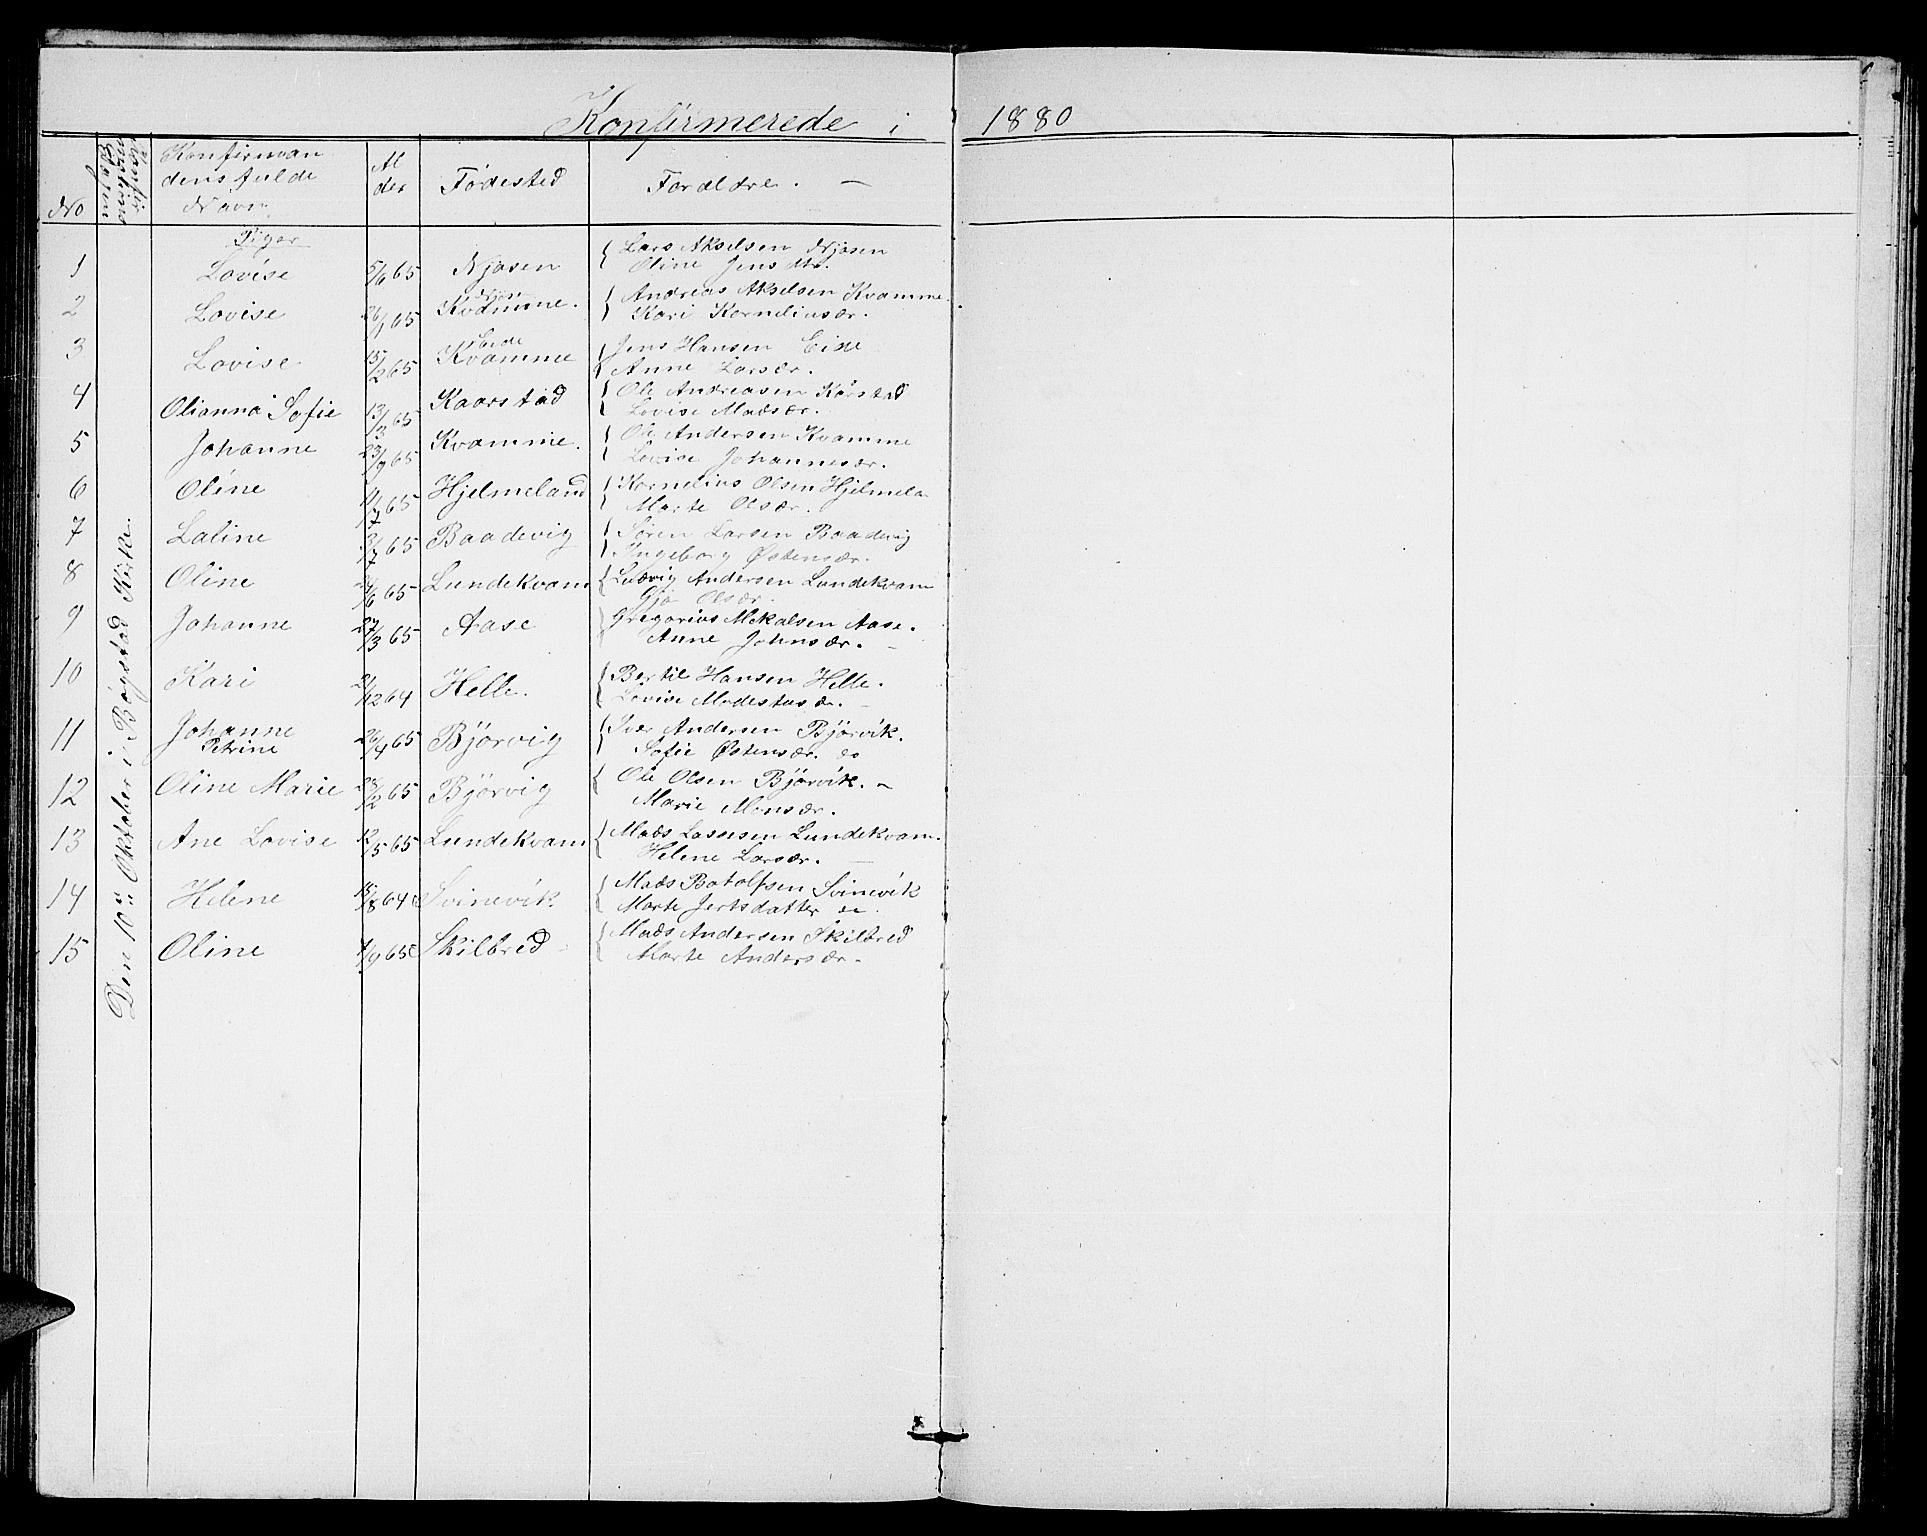 Konfirmerede i 1880
No
Konfirman
dens fulde
Navn
Al
der
Fødested
Foraldre. —
Den 10de Oktober i Bøgstad Kirke.
Piger
1 Lovise 5/6 65 Njøsen { Lars Akselsen Njøsen
Oline Jensdtr.
2 Lovise 26/1 65 Kvamme. { Andreas Akselsen Kvamme.
Kari Korneliusær.
3 Lovise 15/2 65 Kvamme { Jens Hansen Eide
Anne Larsær.
4 Olianna Sofie 13/3 65 Kaarstad { Ole Andreasen Kårstad
Lovise Madsær.
5 Johanne 23/9 65 Kvamme. { Ole Andersen Kvamme
Lovise Johannesær.
6 Oline 11/7 65 Hjelmeland { Kornelius Olsen Hjelmela
Marte Olsær.
7 Laline 3/7 65 Baadevig { Søren Larsen Baadevig
Ingeborg Østensær.
8 Oline /6 65 Lundekvam { Ludvig Andersen Lundekvam
Gjø Olsær.
9 Johanne 27/3 65 Aase { Gregorius Mikalsen Aase.
Anne Johnsær. –
10 Kari 21/12 64 Helle. { Bertil Hansen Helle.
Lovise Modestusær. –
11 Johanne
Petrine 26/4 65 Bjørvig { Iver Andersen Bjørvik.
Sofie Østensær.
12 Oline Marie 28/2 65 Bjørvig { Ole Olsen Bjørvik. –
Marie Monsær.
13 Ane Lovise 12/5 65 Lundekvam { Mads Lassesen Lundekvam.
Helene Larsær. —
14 Helene 18/8 64 Svinevik { Mads Botolfsen Svinevik
Marte Jertsdatter
15 Oline 4/9 65 Skilbred – { Mads Andersen Skilbred
Marte Andersær.